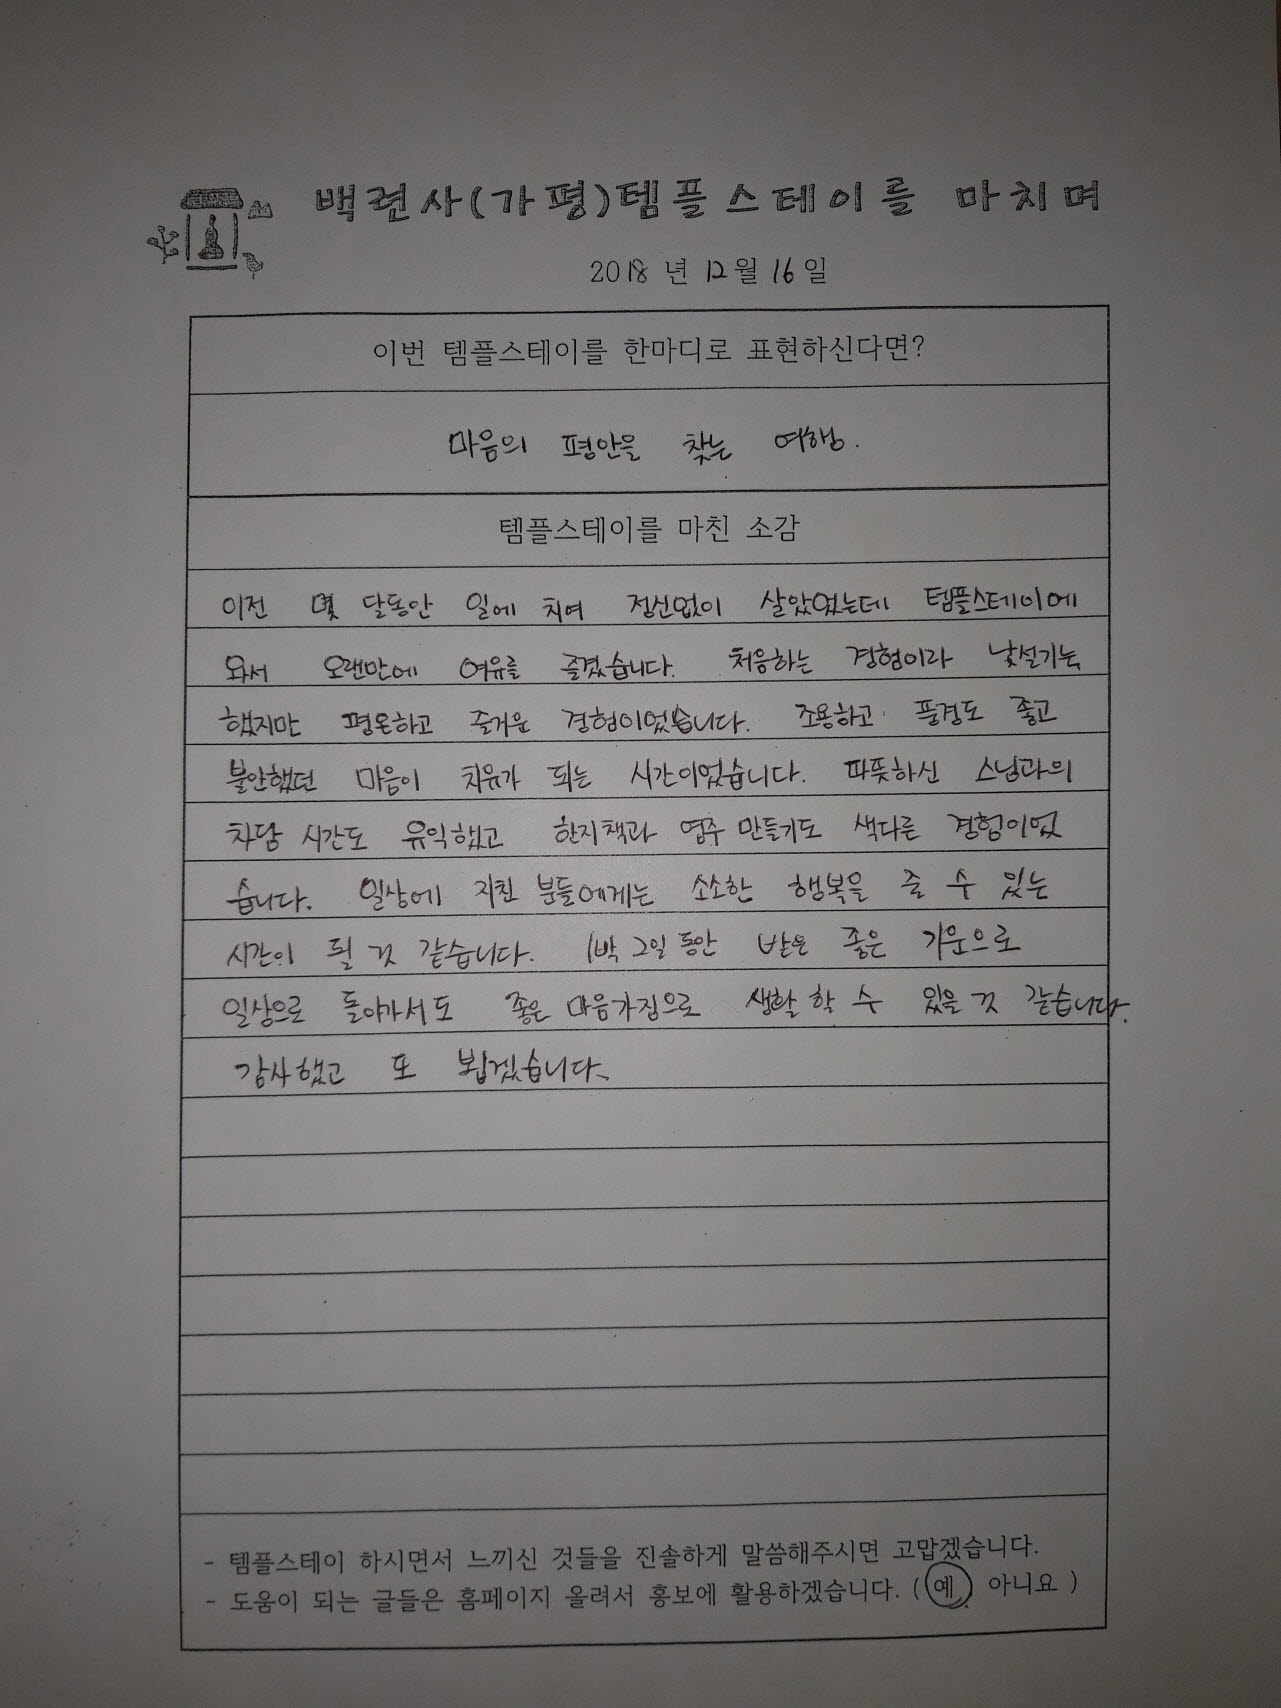 백련사(가평)템플스테이를 마치며
2018년 12월 16일
이번 템플스테이를 한마디로 표현하신다면?
마음의 평안을 찾는 여행.
템플스테이를 마친 소감
이전 몇 달동안 일에 치여 정신없이 살았었는데 템플스테이에
와서 오랜만에 여유를 즐겼습니다. 처음하는 경험이라 낯설기는
했지만 평온하고 즐거운 경험이었습니다. 조용하고 풍경도 좋고
불안했던 마음이 치유가 되는 시간이었습니다. 따뜻하신 스님과의
차담 시간도 유익했고 한지책과 염주 만들기도 색다른 경험이었
습니다. 일상에 지친 분들에게는 소소한 행복을 줄 수 있는
시간이 될 것 같습니다. 1박 2일 동안 받은 좋은 기운으로
일상으로 돌아가서도 좋은 마음가짐으로 생활 할 수 있을 것 같습니다.
감사했고 또 뵙겠습니다.
- 템플스테이 하시면서 느끼신 것들을 진솔하게 말씀해주시면 고맙겠습니다.
- 도움이 되는 글들은 홈페이지 올려서 홍보에 활용하겠습니다. ( 예 아니요 )